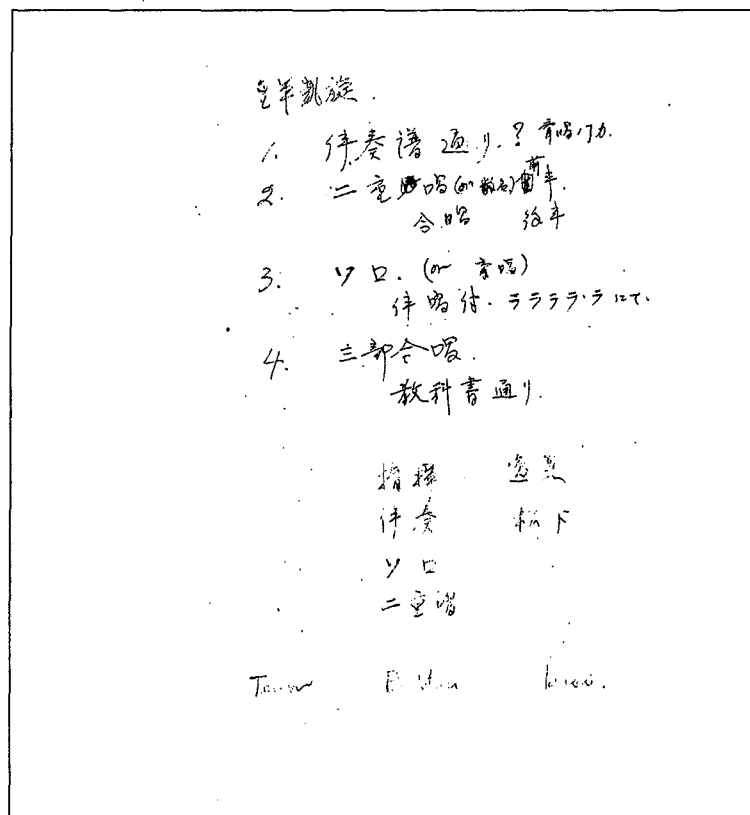 皇軍凱旋.
1. 伴奏譜通り.? 斉唱
2. 二重唱(or 数名)前半.
合唱 後半
3. ソロ. (or 斉唱)
伴唱付. ララララ・ラにて.
4. 三部合唱.
教科書通り.
指揮
伴奏 松下
ソロ
二重唱
Tenor